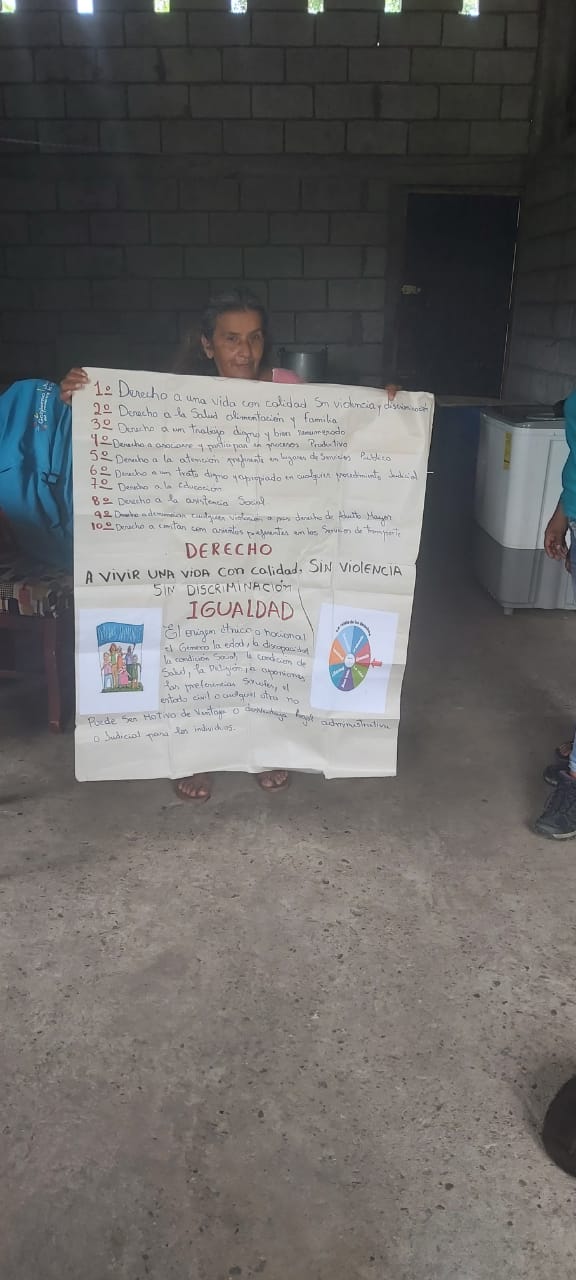 1º Derecho a una vida con calidad Sin violencia y discriminación
2º Derecho a la Salud alimentación y familia
3º Derecho a un trabajo digno y bien remunerado
4º Derecho a asociarse y participar en procesos Productivo
5º Derecho a la atención preferente en lugares de Servicios Publico
6º Derecho a un trato digno y apropiado en cualquier procedimiento Judicial
7º Derecho a la Educación
8º Derecho a la asistencia Social
9º Derecho a denunciar cualquier violación a sus derecho de Adulto Mayor
10º Derecho a contar con asientos preferentes en los Servicios de transporte
DERECHO
A VIVIR UNA VIDA con calidad, SIN VIOLENCIA
SIN DISCRIMINACIÓN
IGUALDAD
El origen étnico o nacional
el Genero la edad, la discapacidad
la condición Social, la condición de
Salud, la Religión, la opiniones
las preferencias Sexuales, el
estado civil o cualquier otra no
Puede Ser Motivo de Ventaja o desventaja administrativa
o Judicial para los individuos.